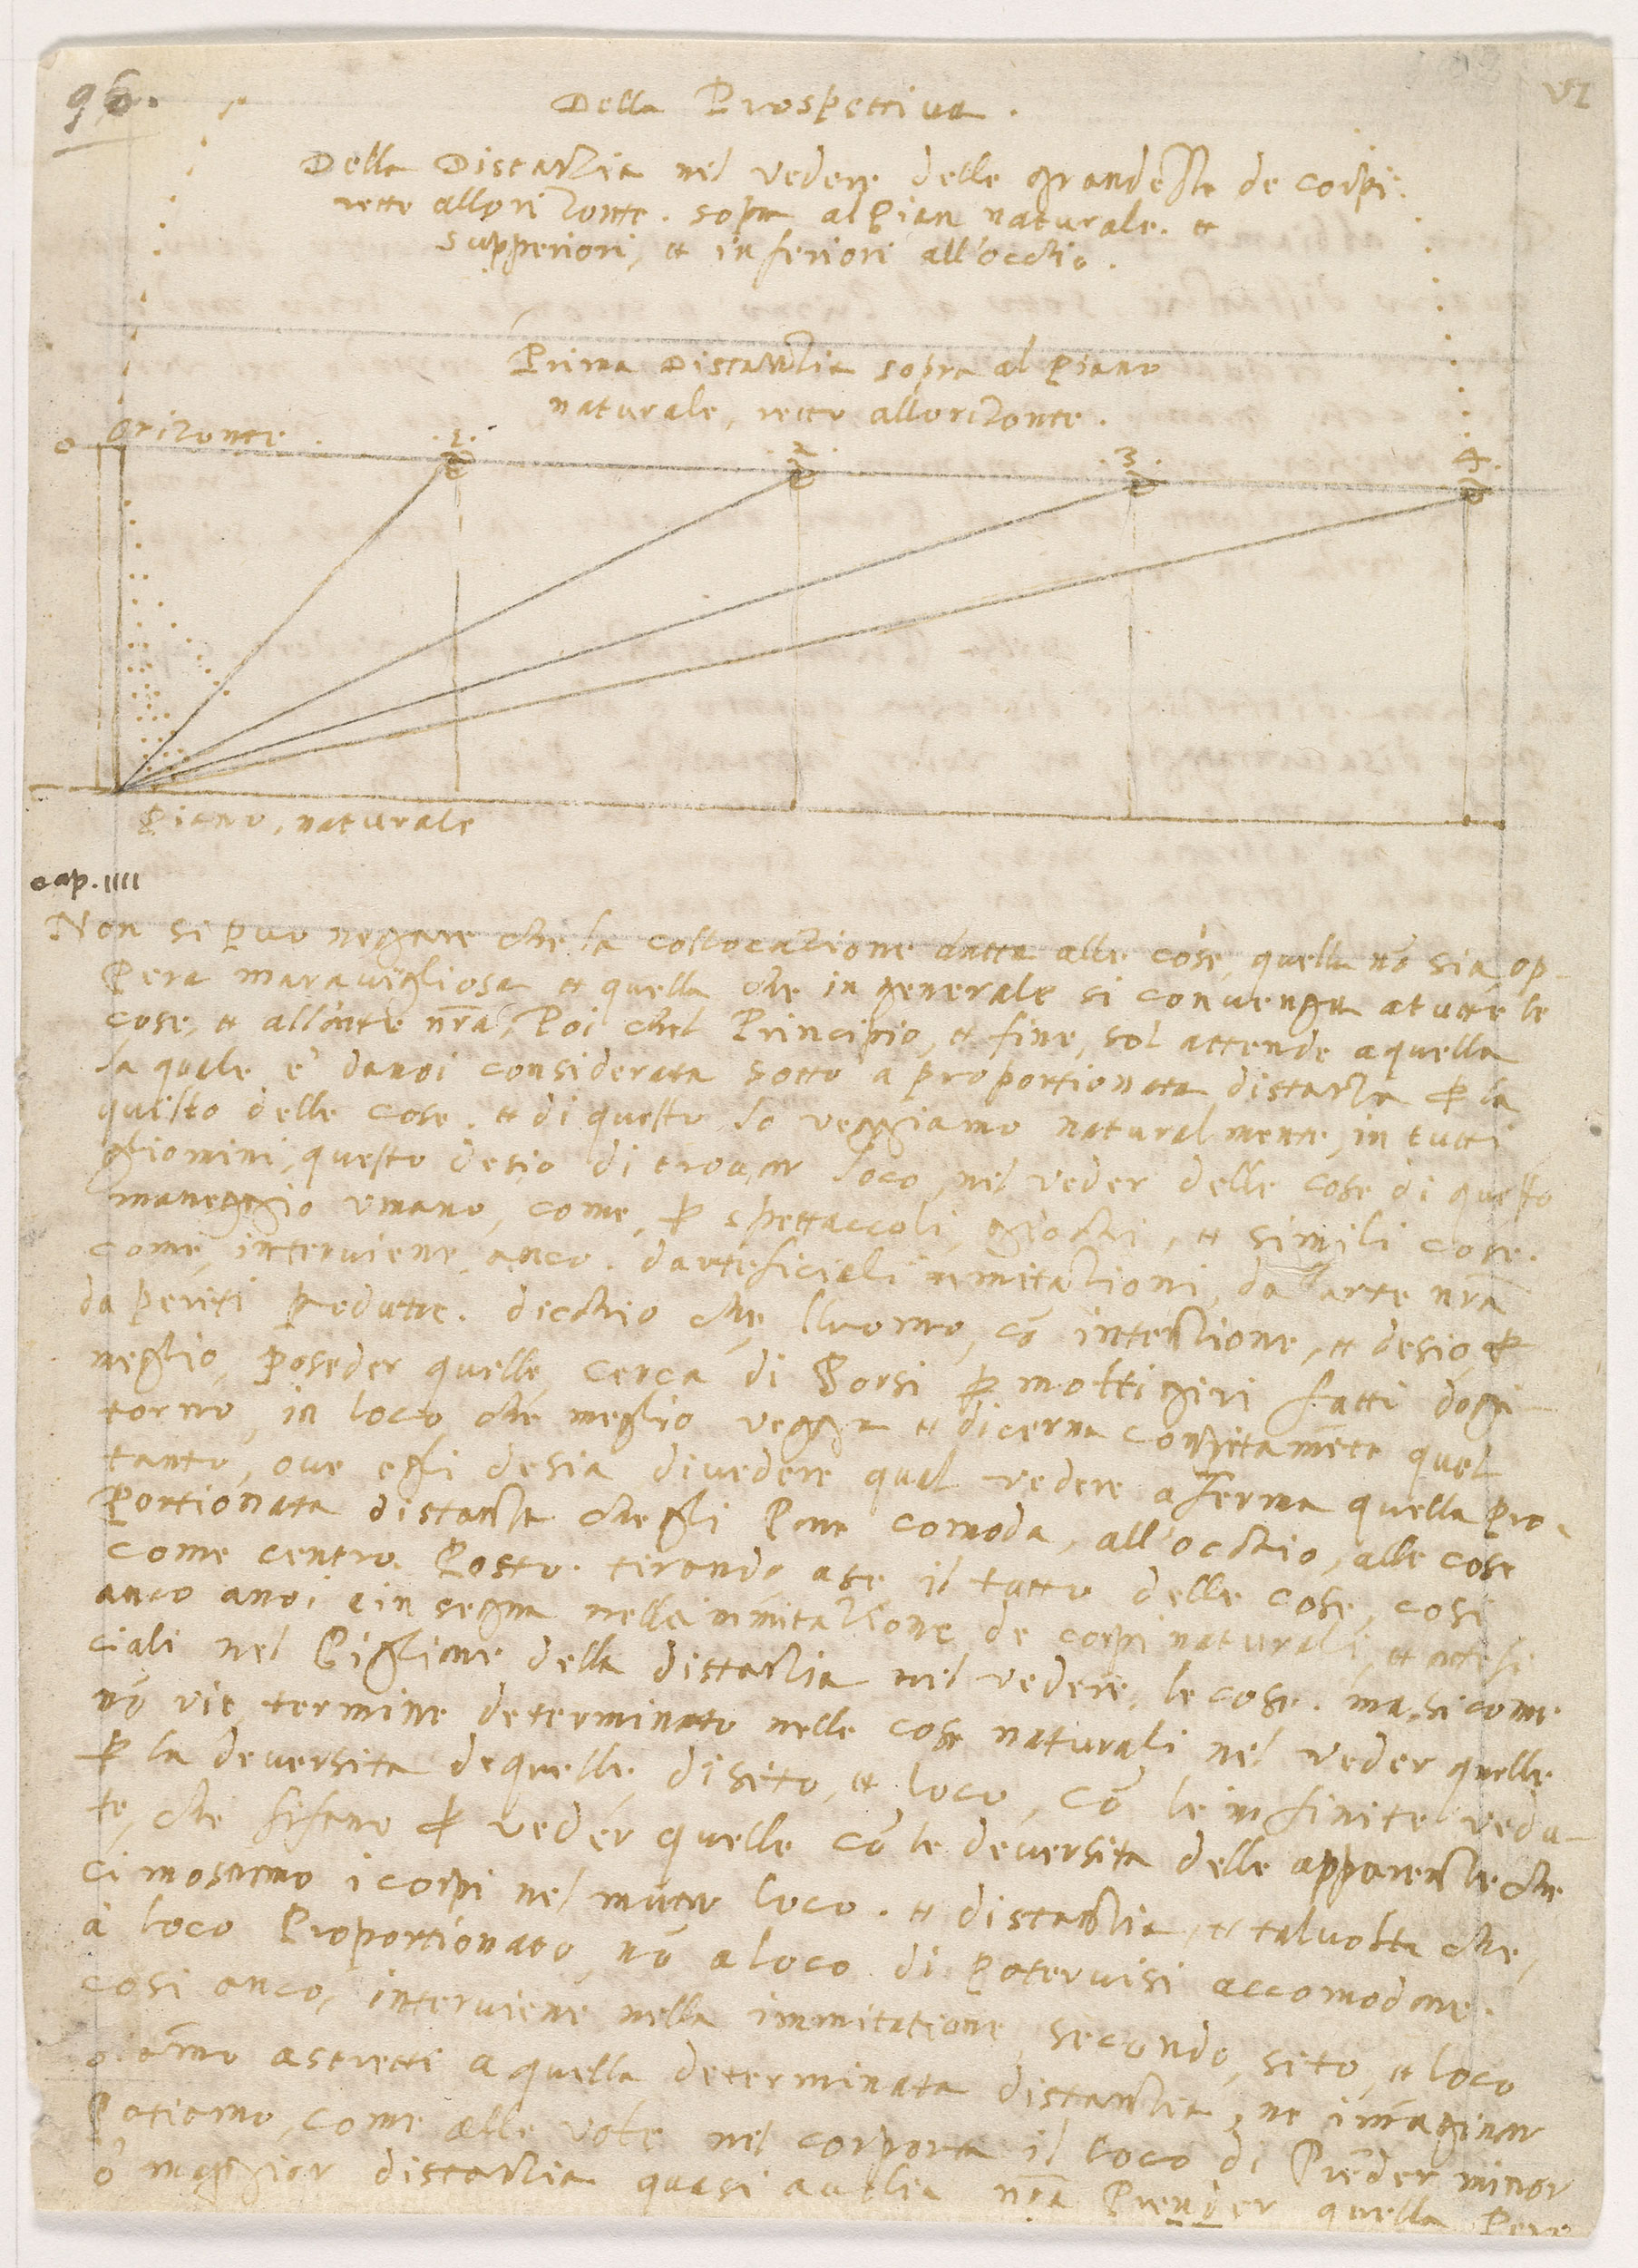 96.
VI
Della Prospettiua.
Della Distantia nel vedere delle grandesse de corpi.
retto allorizonte. sopra al Pian naturale. et
supperiori, et inferiori all'occhio.
Prima Distantia sopra al Piano
naturale, retto allorizonte.
o orizonte. .1. .2. .3. .4.
Piano, naturale
cap. IIII
Non si puo negare che la collocatione datta alle cose, quella nō sia op-
pera marauegliosa et quella che in generale si conuenga a tutte le
cose, et all'arte nr̄a, Poi chel Principio, et fine, sol attende a quella
la quale e' da noi considerata sotto a proportionata distantia ꝑ la
quisto delle cose. et di questo lo veggiamo naturalmente, in tutti
gliomini, questo desio di trouar loco, nel veder delle cose di questo
maneggio vmano, come, ꝑ spettaccoli, giochi, et simili cose.
come, interviene, anco. d'arteficiali immitationi, da arte nr̄a
da periti produtte. dicchio che, lluomo, cō intentione, et desio, ꝑ
meglio, poseder quelle, cerca di Porsi ꝑ molti giri fatti dogi-
torno, in loco, che meglio vegga et dicerna compitamēte quel
tanto, oue egli desia di vedere qual vedere aferma quella pro-
portionata distantia che gli Pare comoda, all'occhio, alle cose
come centro. Posto. tirando, a se il tutto delle cose, cosi
anco a noi, insegna nella immitatione de corpi naturali, et artefi
ciali nel Pigliare della distantia nel vedere, le cose. ma, si come
nō vie termine determinato nelle cose naturali nel veder quelle
ꝑ la deuersita de quelle, di sitto, et loco, cō le infinite vedu-
te, che si fano ꝑ veder quelle cō le deuersita delle apparentie che
ci mostrano i corpi nel mutar loco. et distantia, et taluolta che,
a loco Proportionato, nō a loco di poteruisi accomodare.
cosi anco, interviene nella immitatione, secondo, sito, et loco
siāmo astretti a quella determinata distantia, ne immaginar
Potiamo, come alle volte nel corporta il loco di Prēder minor
o' maggior distantia quasi a uolia nr̄a Prender quella Pere